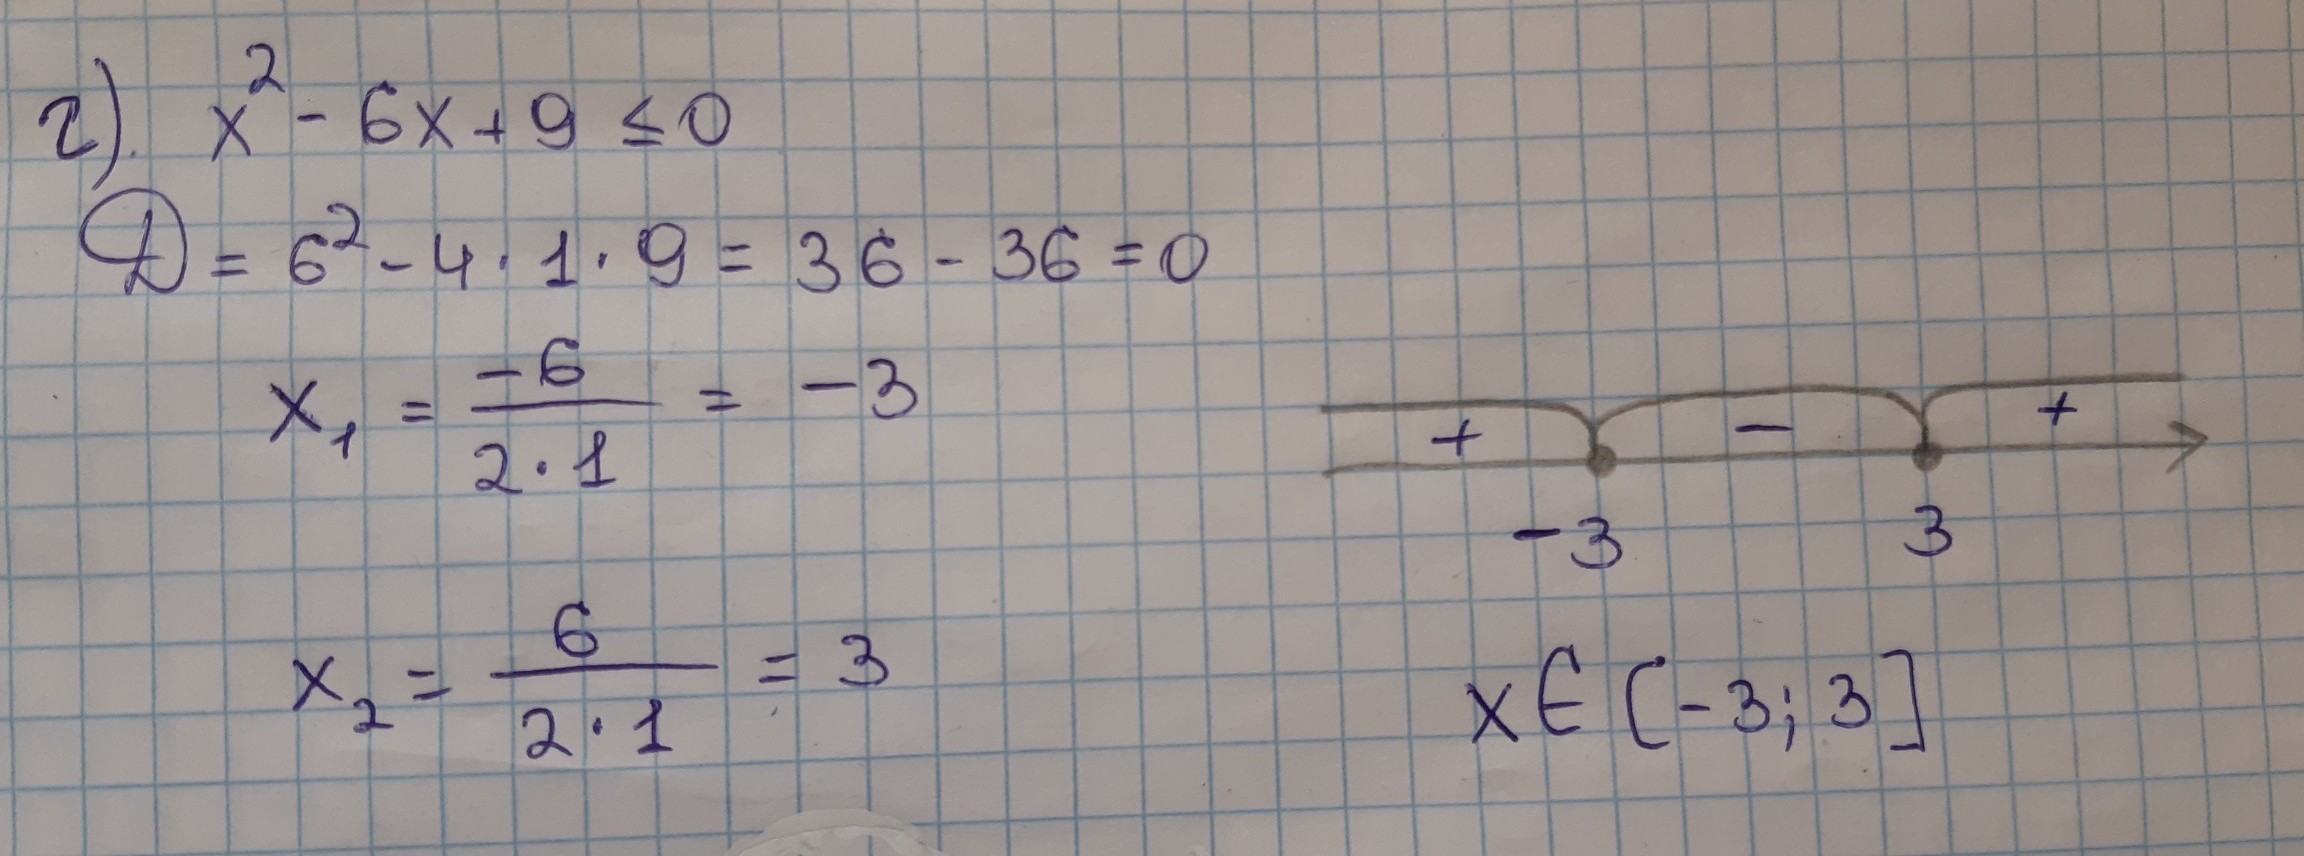 г). x² - 6x + 9 ≤ 0
D = 6² - 4 · 1 · 9 = 36 - 36 = 0
x₁ = -6 / 2 · 1 = -3
+ - +
-3 3
x₂ = 6 / 2 · 1 = 3
x ∈ [-3; 3]